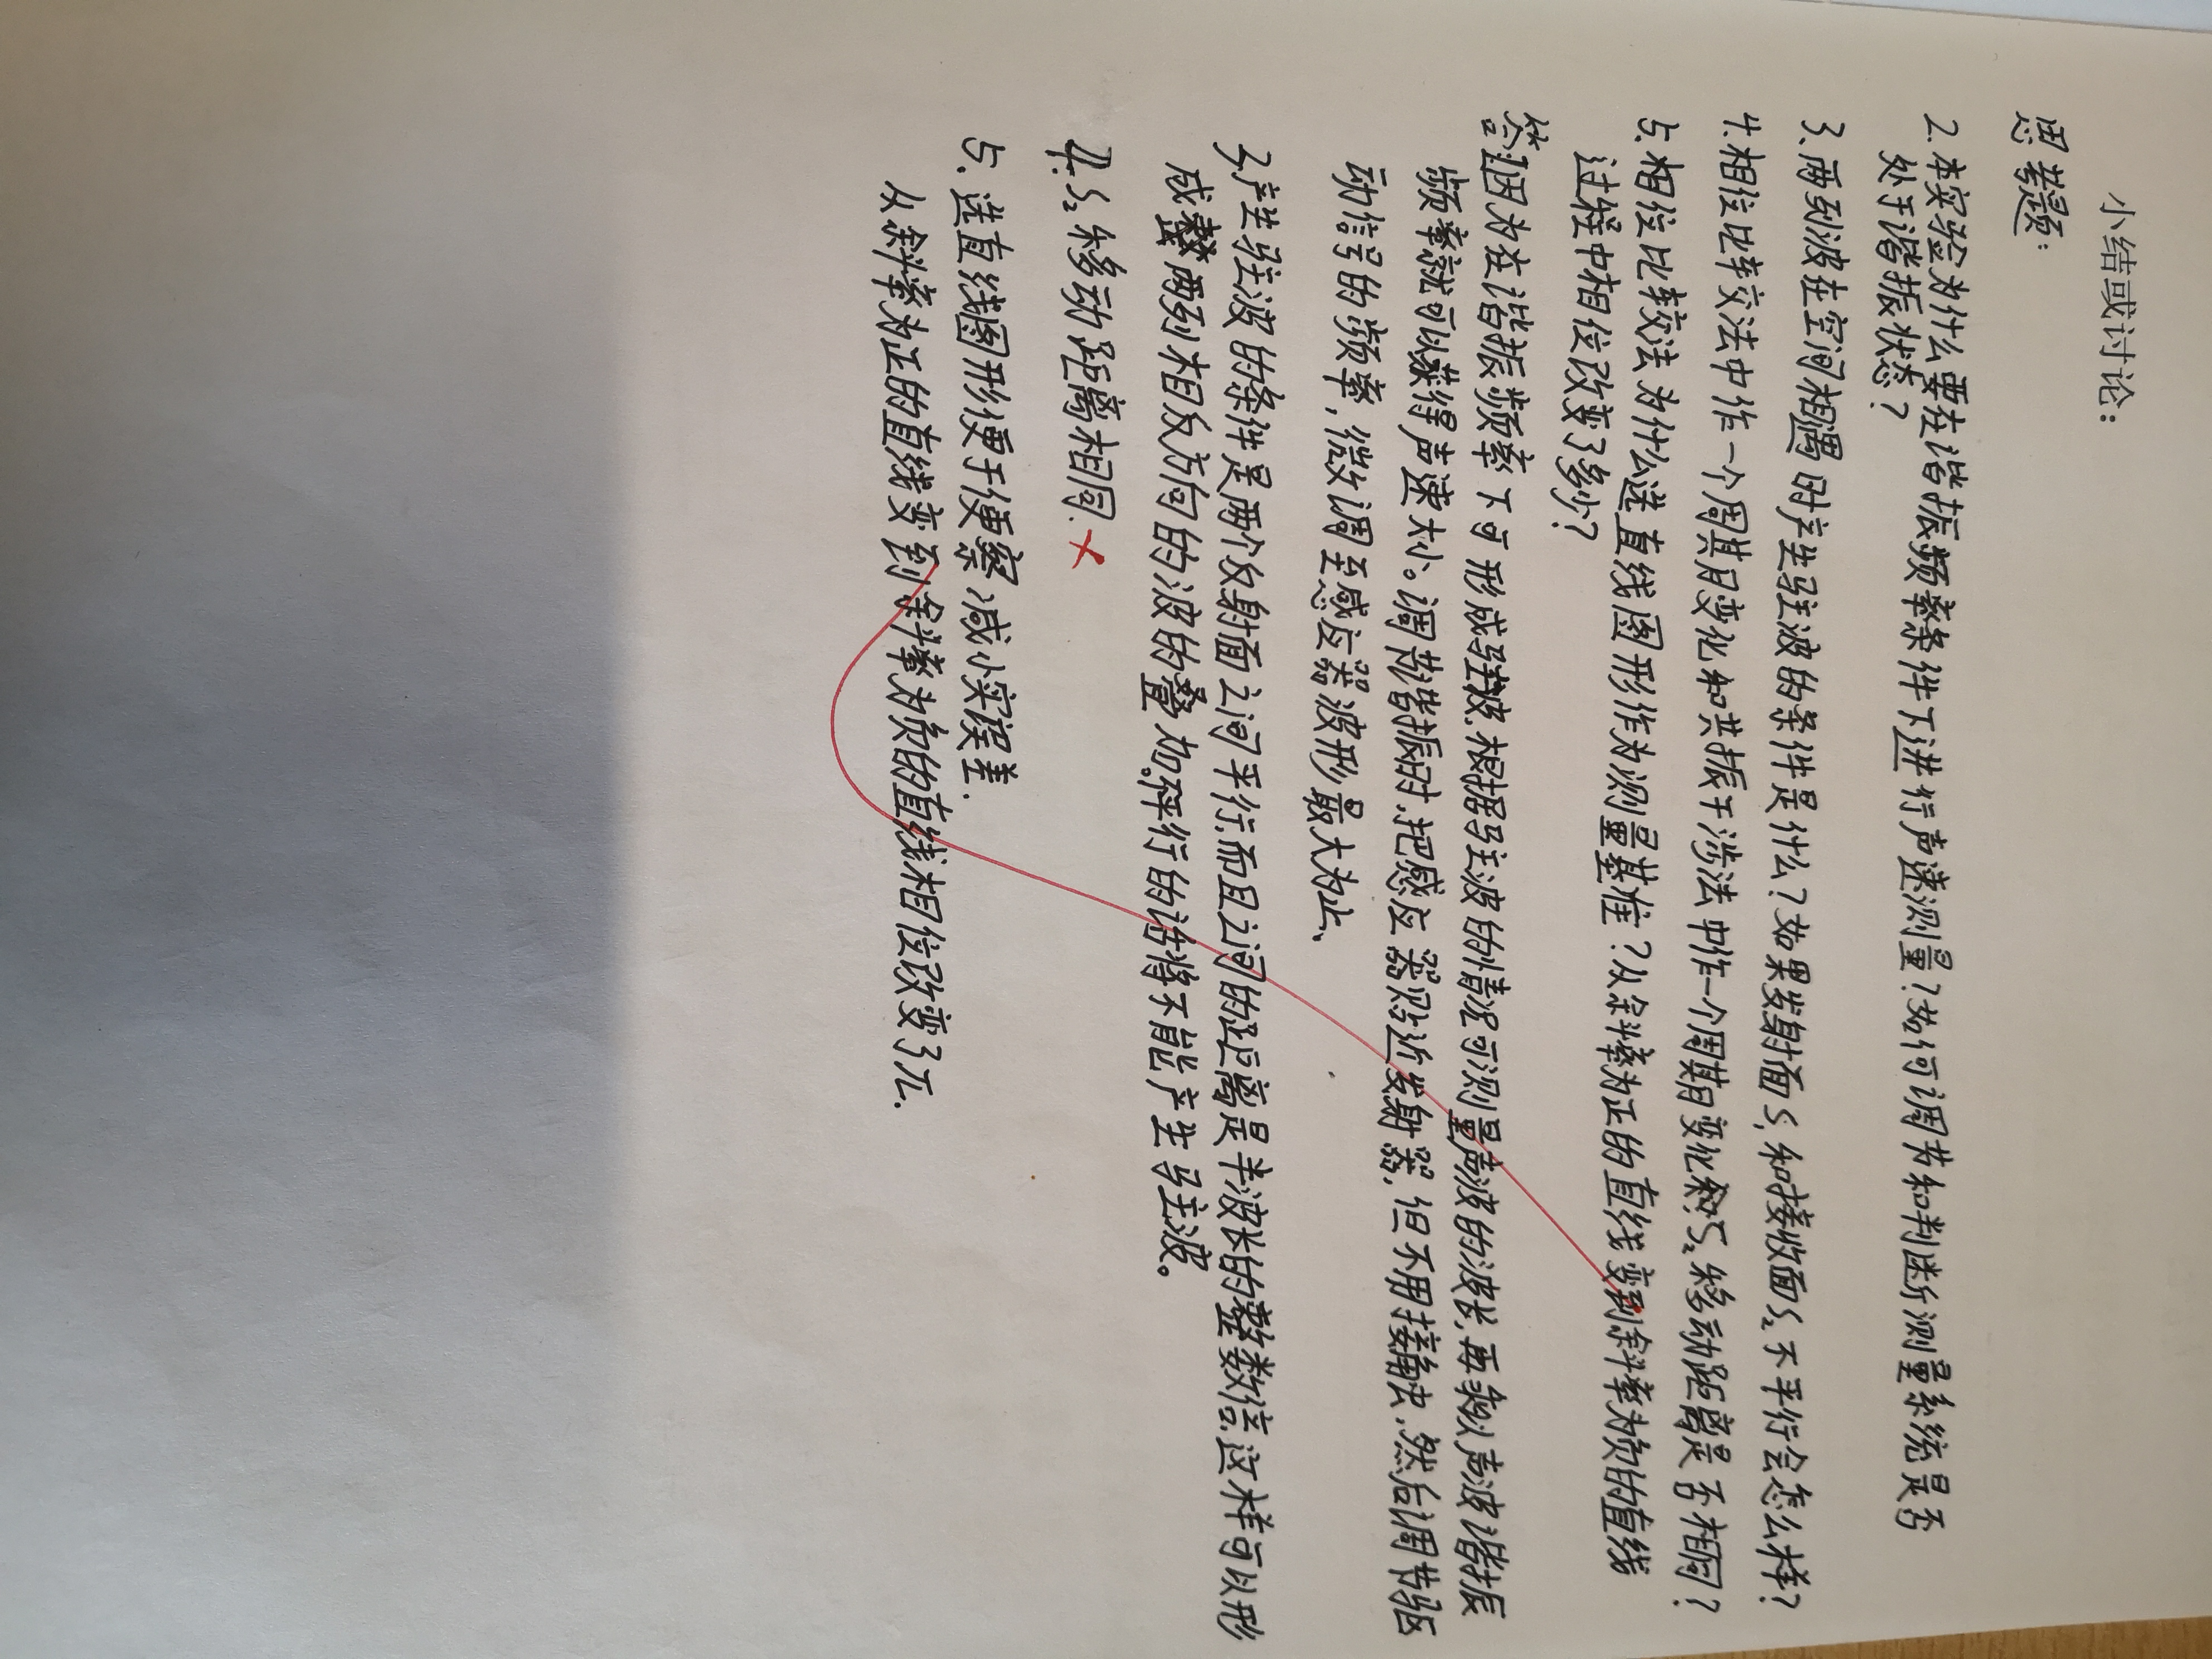 小结或讨论：
思考题：
2.本实验为什么要在谐振频率条件下进行声速测量？如何调节和判断测量系统是否
处于谐振状态？
3.两列波在空间相遇时产生驻波的条件是什么？如果发射面S₁和接收面S₂不平行会怎么样？
4.相位比较法中作一个周期变化和共振干涉法中作一个周期变化和S₂移动距离是否相同？
5.相位比较法为什么选直线图形作为测量基准？从斜率为正的直线变到斜率为负的直线
过程中相位改变了多少？
答:因为在谐振频率下可形成驻波.根据驻波的情况可测量声波的波长,再乘以声波谐振
频率就可以获得声速大小。调节谐振时,把感应器贴近发射器,但不用接触,然后调节驱
动信号的频率,微调至感应器波形最大为止、
3.产生驻波的条件是两个反射面之间平行.而且之间的距离是半波长的整数倍.这样可以形
成两列相反方向的波的叠加。不平行的话将不能产生驻波。
4.S₂移动距离相同.
5、选直线图形便于观察.减小实误差.
从斜率为正的直线变到斜率为负的直线相位改变了π.